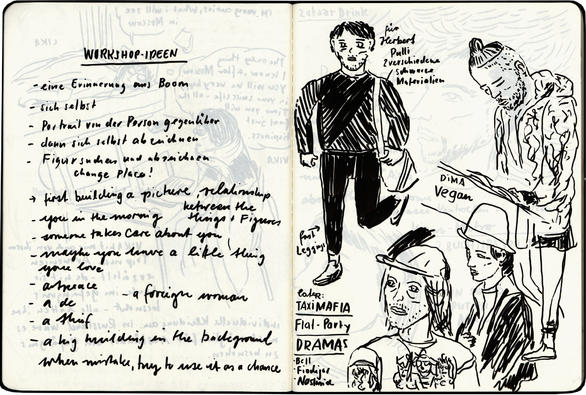 WORKSHOP-IDEEN
- eine Erinnerung aus Boom
- sich selbst
- Portrait von der Person gegenüber
- dann sich selbst abzeichnen
- Figur suchen und abzeichnen
change Place!
→ first building a picture, relationship
between the
things + Figures
- you in the morning
- someone takes care about you
- maybe you leave a little thing
you love
- a
- a
- a foreign woman
- a thief
- a big building in the background
when mistake, try to use it as a chance
für
Herbert
Pulli
2 verschiedene
schwarze
Materialien
DIMA
Vegan
Leggins
later:
TAXIMAFIA
Flat-Party
DRAMAS